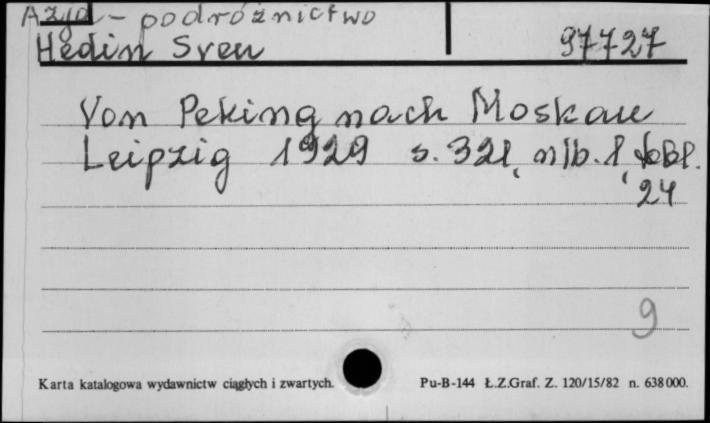 Azja - podróżnictwo
Hedin Sven 97727
Von Peking nach Moskau
Leipzig 1929 s. 321, nlb. 1,
24
9
Karta katalogowa wydawnictw ciągłych i zwartych.
Pu-B-144 Ł.Z.Graf. Z. 120/15/82 n. 638000.